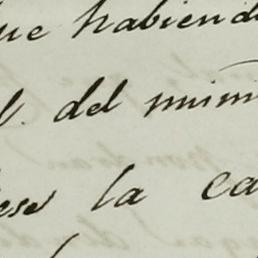 que habiend
del mini
ese la ca